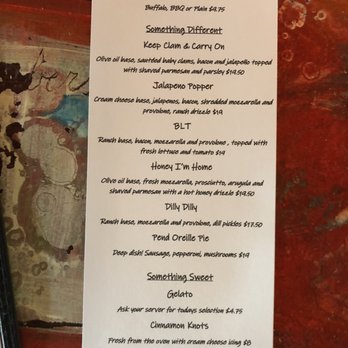 Buffalo, BBQ or Plain $9.75
Something Different
Keep Clam & Carry On
Olive oil base, sautéed baby clams, bacon and jalapeño topped
with shaved parmesan and parsley $19.50
Jalapeno Popper
Cream cheese base, jalapenos, bacon, shredded mozzarella and
provolone, ranch drizzle $19
BLT
Ranch base, bacon, mozzarella and provolone , topped with
fresh lettuce and tomato $19
Honey I'm Home
Olive oil base, fresh mozzarella, prosciutto, arugula and
shaved parmesan with a hot honey drizzle $19.50
Dilly Dilly
Ranch base, mozzarella and provolone, dill pickles $17.50
Pend Oreille Pie
Deep dish! Sausage, pepperoni, mushrooms $19
Something Sweet
Gelato
Ask your server for todays selection $4.75
Cinnamon Knots
Fresh from the oven with cream cheese icing $8